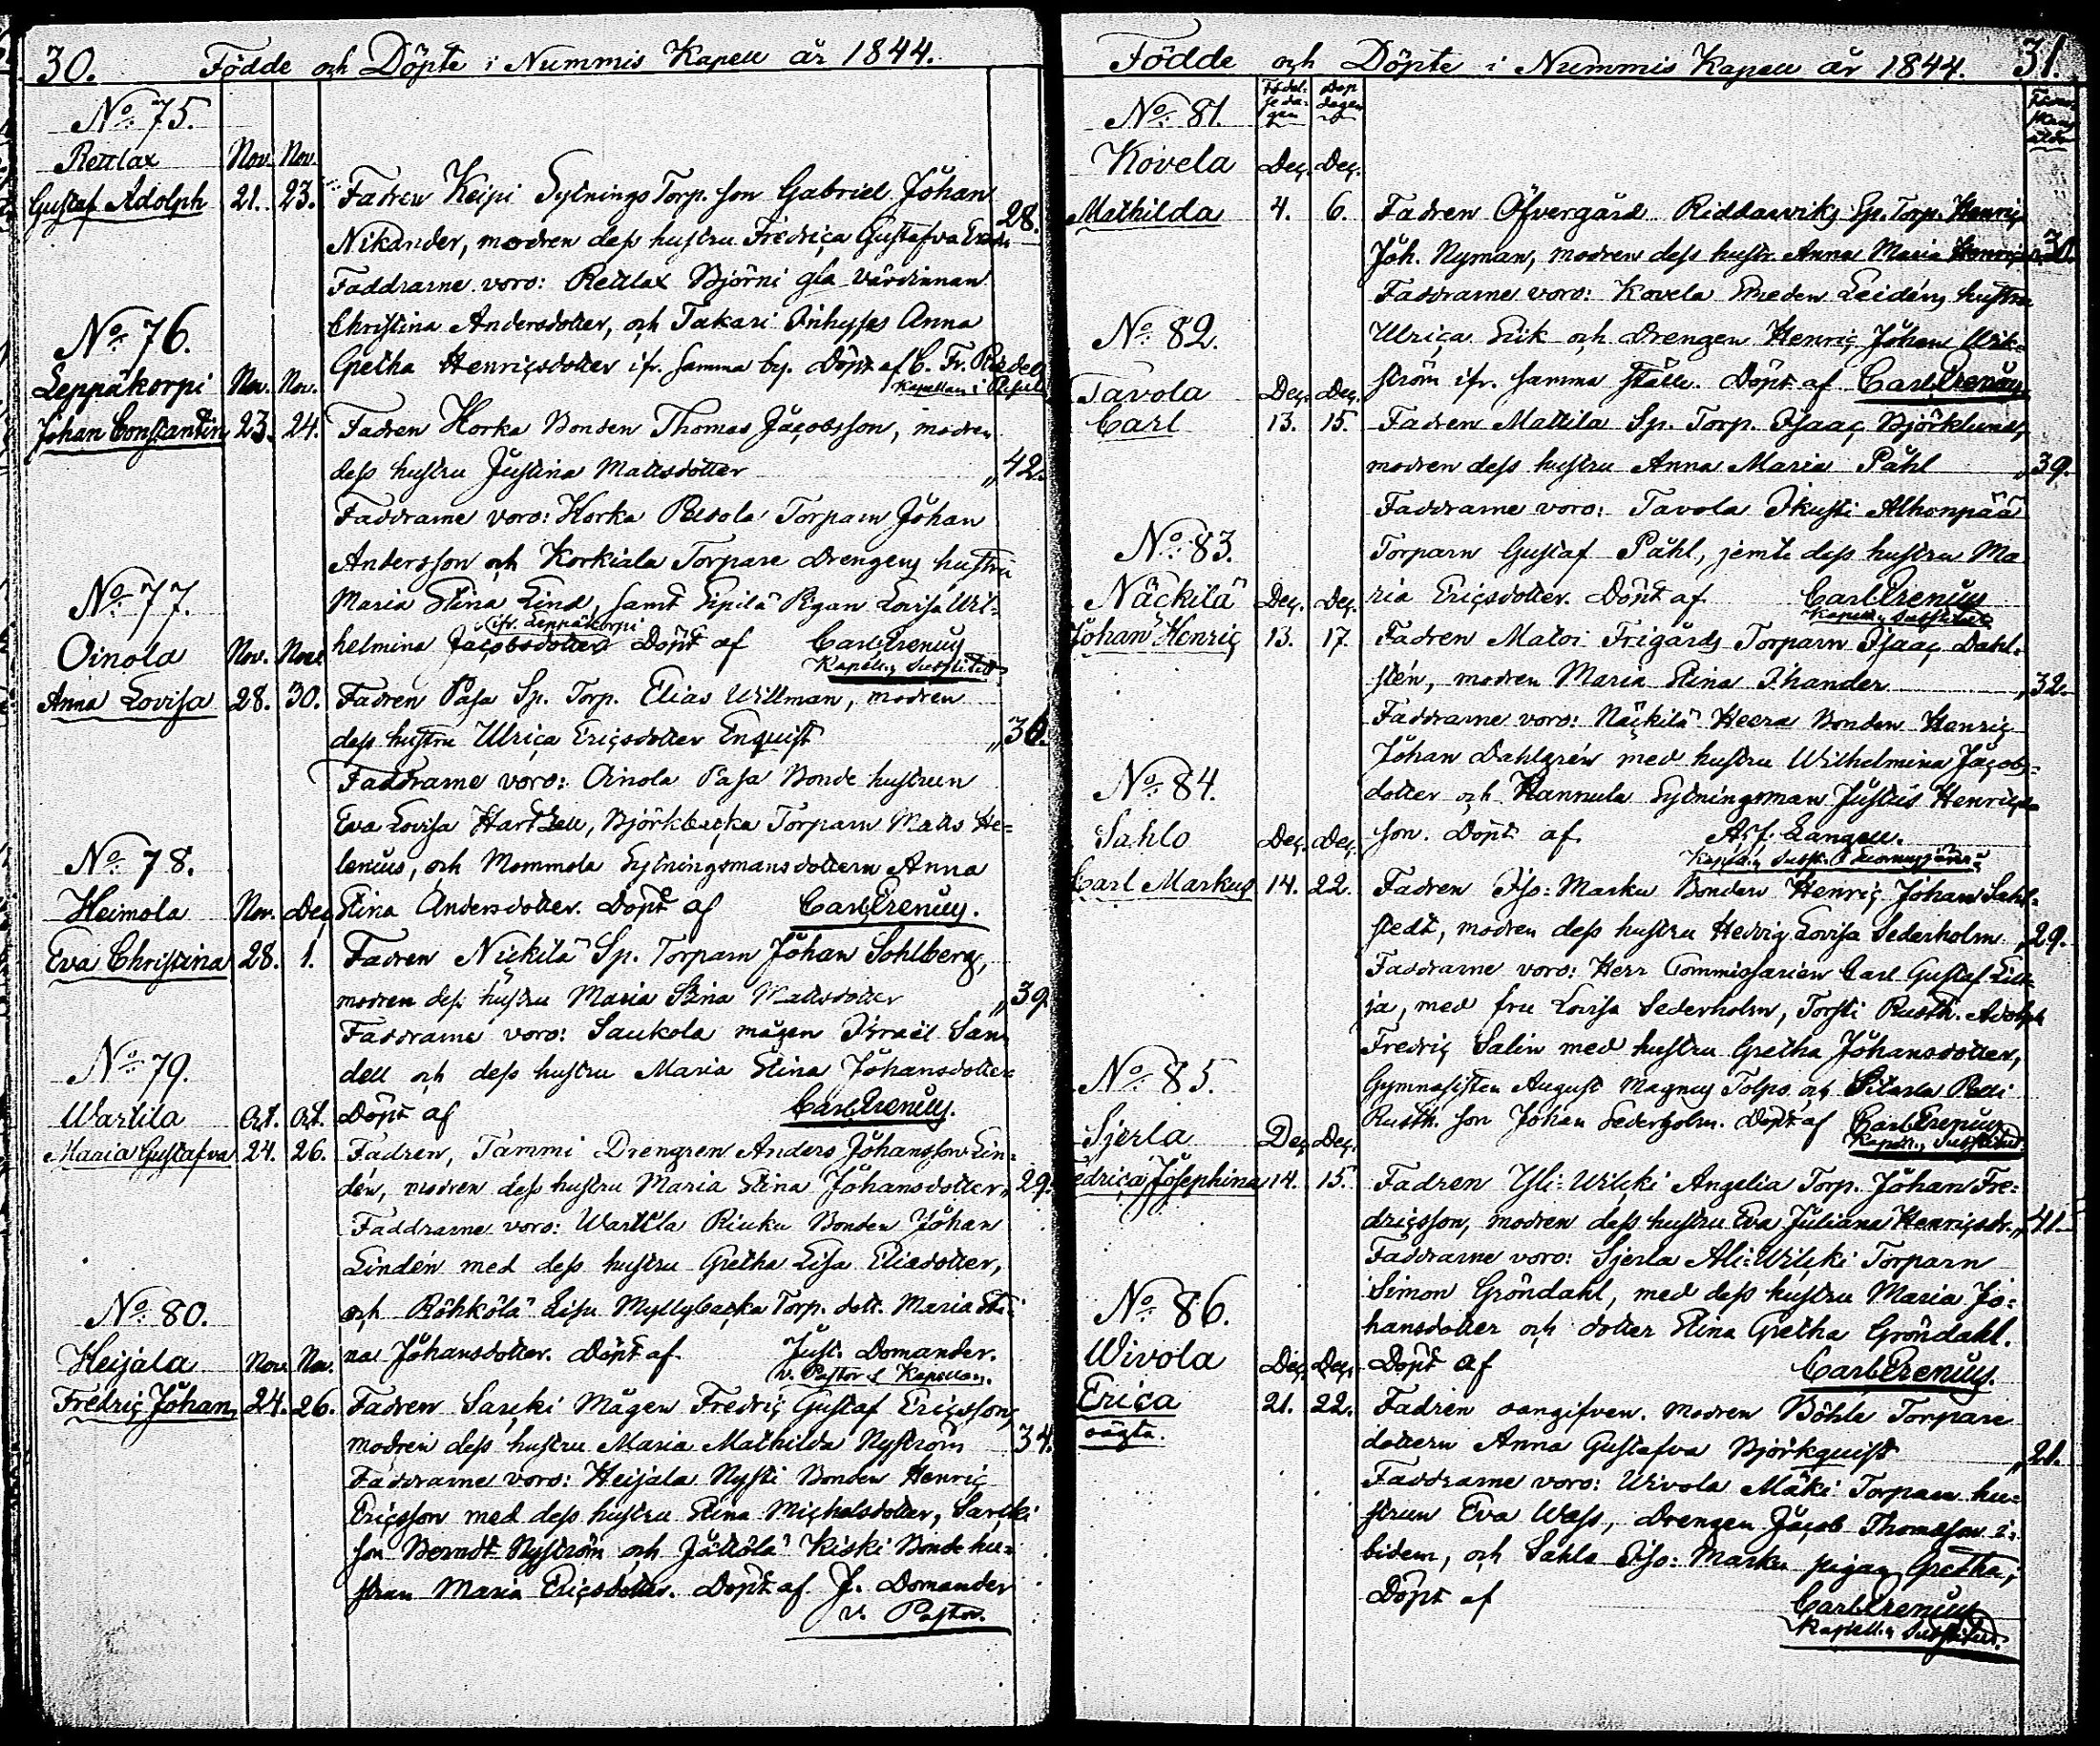 30. Födde och Döpte i Nummis Kapell år 1844.
No. 75.
Rettlax Nov. Nov.
Gustaf Adolph 21. 23. Fadren Keipi Sytnings Torp. son Gabriel Johan
Nikander, modren dess hustru Fredrica Gustafva 28.
Faddrarne voro: Rettlax Björni gla värdinnan
Christina Andersdotter, och Takari Inhyses Anna
Gretha Henricsdotter ifr. samma by. Döpt af C. Fr.
Kapellan i
No. 76.
Leppäkorpi Nov. Nov.
Johan Constantin 23. 24. Fadren Horka Bonden Thomas Jacobsson, modren
dess hustru Justina Mattsdotter „ 42.
Faddrarne voro: Horka Torparn Johan
Andersson och Korkiala Torpare Drengens hustru
Maria Stina Lind, samt Sipilä Pigan Lovisa Wil-
ifr. Leppäkorpi
helmina Jacobsdotter Döpt af Carl Prenius
Kapell.s Substitut
No. 77.
Oinola Nov. Nov.
Anna Lovisa 28. 30. Fadren Pasa Sp. Torp. Elias Willman, modren
dess hustru Ulrica Ericsdotter Enquist „ 36.
Faddrarne voro: Oinola Pasa Bonde hustrun
Eva Lovisa Hartzell, Björkbacka Torparn Matts He=
lenius, och Mommola Sytningsmansdottern Anna
Stina Andersdotter. Döpt af Carl Prenius.
No. 78.
Heimola Nov. Dec.
Eva Christina 28. 1. Fadren Nickilä Sp. Torparn Johan Sohlberg,
modren dess hustru Maria Stina Mattsdotter „ 39
Faddrarne voro: Saukola mågen Israel San
dell och dess hustru Maria Stina Johansdotter
Döpt af Carl Prenius.
No. 79.
Wartila Oct. Oct.
Maria Gustafva 24. 26. Fadren, Tammi Drengren Anders Johansson Lin=
dén, modren dess hustru Maria Stina Johansdotter „ 29.
Faddrarne voro: Wartila Riuku Bonden Johan
Lindén med dess hustru Gretha Lisa Eliedotter,
och Röhkölä Myllybacka Torp. dott. Maria Sti-
na Johansdotter. Döpt af Just. Domander.
v. Pastor & Kapellan.
No. 80.
Heijala Nov. Nov.
Fredric Johan 24. 26. Fadren Sarcki Mågen Fredric Gustaf Ericsson,
modren dess hustru Maria Mathilda Nyström 34.
Faddrarne voro: Heijala Nysti Bonden Henric
Ericsson med dess hustru Stina Michelsdotter, Sarcki
son Berndt Nyström och Jättölä Kiski Bonde hu=
strun Maria Ericsdotter. Döpt af J. Domander
v. Pastor.
Födde och Döpte i Nummis Kapell år 1844. 31.
Födel-
seda-
gen Dop
dagen
No. 81.
Kovela Dec. Dec.
Mathilda 4. 6. Fadren Öfvergård Riddarviks Sp. Torp. Henric
Joh. Nyman, modren dess hustr. Anna Maria 30.
Faddrarne voro: Kovela Smeden Leidéns hustru
Ulrica Slik och Drengen Henric Johan Wik=
ström ifr. samma ställe. Döpt af Carl Prenius.
No. 82.
Tavola Dec. Dec.
Carl 13. 15. Fadren Mattila Sp. Torp. Isaac Björklund,
modren dess hustru Anna Maria Påhl „ 39.
Faddrarne voro: Tavola Ikusti Alhonpää
Torparn Gustaf Påhl, jemte dess hustru Ma
ria Ericsdotter. Döpt af Carl Prenius
Kapell.s Substitut
No. 83.
Näckilä Dec. Dec.
Johan Henric 13. 17. Fadren Maloi Frigårds Torparn Isaac Dahl-
stén, modren Maria Stina Ihander „ 32.
Faddrarne voro: Näckilä Heera Bonden Henric
Johan Dahlgrén med hustru Wilhelmina Jacobs=
dotter och Hannula Sytningsman Justus Henrics
son. Döpt af. Ad. J. Langell.
No. 84.
Sahlo Dec. Dec.
Carl Markus 14. 22. Fadren Iso=Marku Bonden Henric Johan Sahl-
stedt, modren dess hustru Hedvig Lovisa Sederholm „ 29.
Faddrarne voro: Herr Commissarien Carl Gustaf Lill
ja, med fru Lovisa Sederholm, Torsti Rusth. Adolph
Fredric Salin med hustru Gretha Johansdotter,
Gymnasisten August Magnus Tolpo och Sitarla Pedi
Rusth. son Johan Sederholm. Döpt af Carl Prenius
Kapell.s Substitut
No. 85.
Sjerla Dec. Dec.
edrica Josephina 14. 15. Fadren Yli=Wilcki Angelia Torp. Johan Fre=
dricsson, modren dess hustru Eva Juliana Henricsdr. „ 41.
Faddrarne voro: Sjerla Ali=Wilcki Torparn
Simon Gröndahl, med dess hustru Maria Jo=
hansdotter och dotter Stina Gretha Gröndahl.
Döpt af Carl Prenius.
No. 86.
Wivola Dec. Dec.
Erica 21. 22. Fadren oangifven. Modren Böhle Torpare
oägta. dottern Anna Gustafva Björkquist „ 21.
Faddrarne voro: Wivola Mäki Torparn hu=
strun Eva Wass, Drengen Jacob Thomasson i=
bidem, och Sahla Iso=Marku pigan Gretha;
Döpt af Carl Prenius
Kapell.s Substitut.